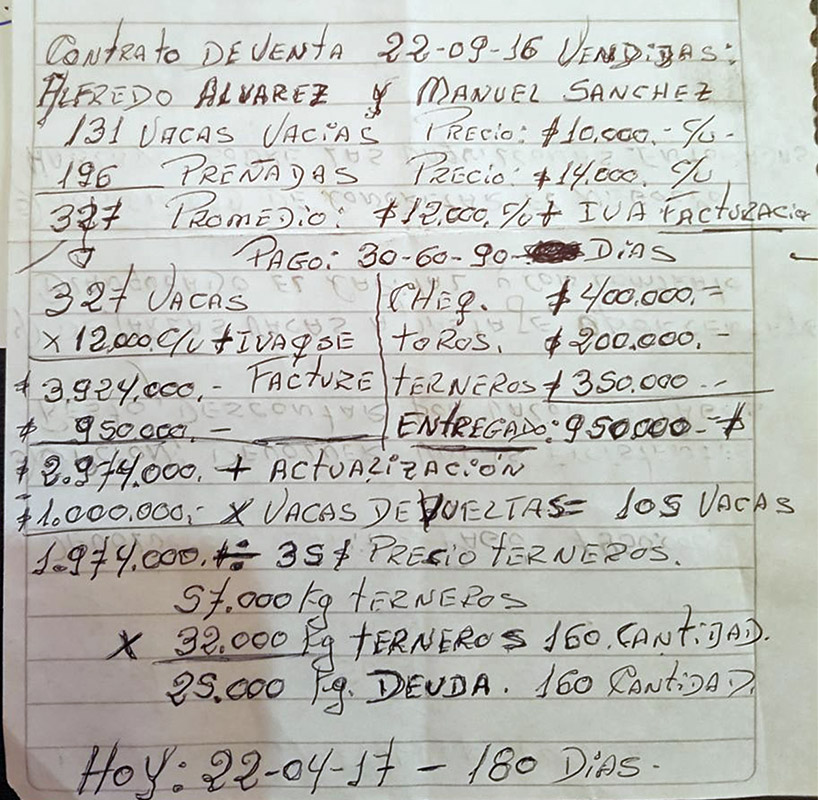 CONTRATO DE VENTA 22-09-16 VENDIDAS:
ALFREDO ALVAREZ Y MANUEL SANCHEZ
131 VACAS VACIAS PRECIO: $10.000.- C/U-
196 PREÑADAS PRECIO: $14.000. C/U
327 PROMEDIO: $12.000. C/U + IVA FACTURACIO
PAGO: 30-60-90- DIAS
327 VACAS
X 12.000 C/U + IVA QSE
$ 3.924.000.- FACTURE
$ 950.000.-
CHEQ. $ 400.000.-
TOROS. $ 200.000.-
TERNEROS $ 350.000.-
ENTREGADO: 950000.-$
$ 2.974.000. + ACTUALIZACIÓN
$ 1.000.000.- X VACAS DEVUELTAS= 105 VACAS
1.974.000. ÷ 35 $ PRECIO TERNEROS.
57.000 Kg TERNEROS
X 32.000 Kg TERNEROS 160. CANTIDAD.
25.000 Kg. DEUDA. 160 CANTIDAD.
HOY: 22-04-17 - 180 DIAS.